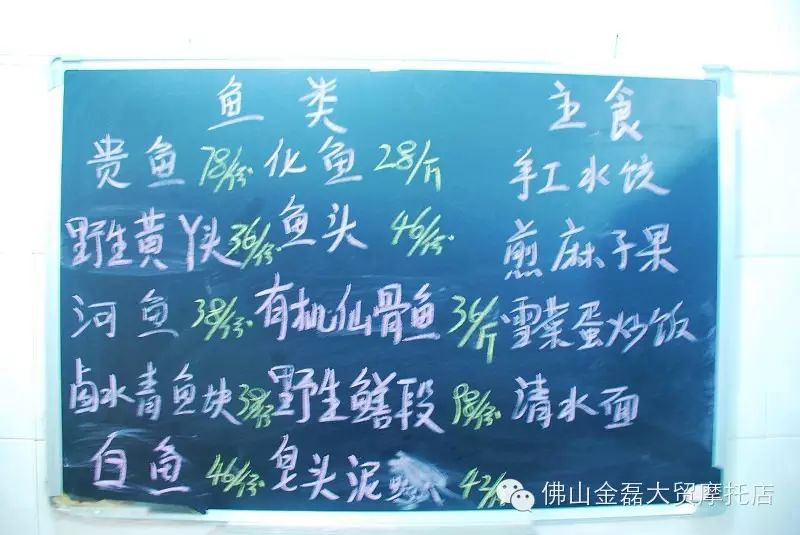 鱼类 主食
贵鱼 78/份 化鱼 28/斤 手工水饺
野生黄丫头 36/份 鱼头 46/份 煎麻子果
河鱼 38/份 有机仙骨鱼 36/斤 雪菜蛋炒饭
卤水青鱼块 38/份 野生鳝段 98/份 清水面
白鱼 46/份 皂头泥 42/
佛山金磊大贸摩托店